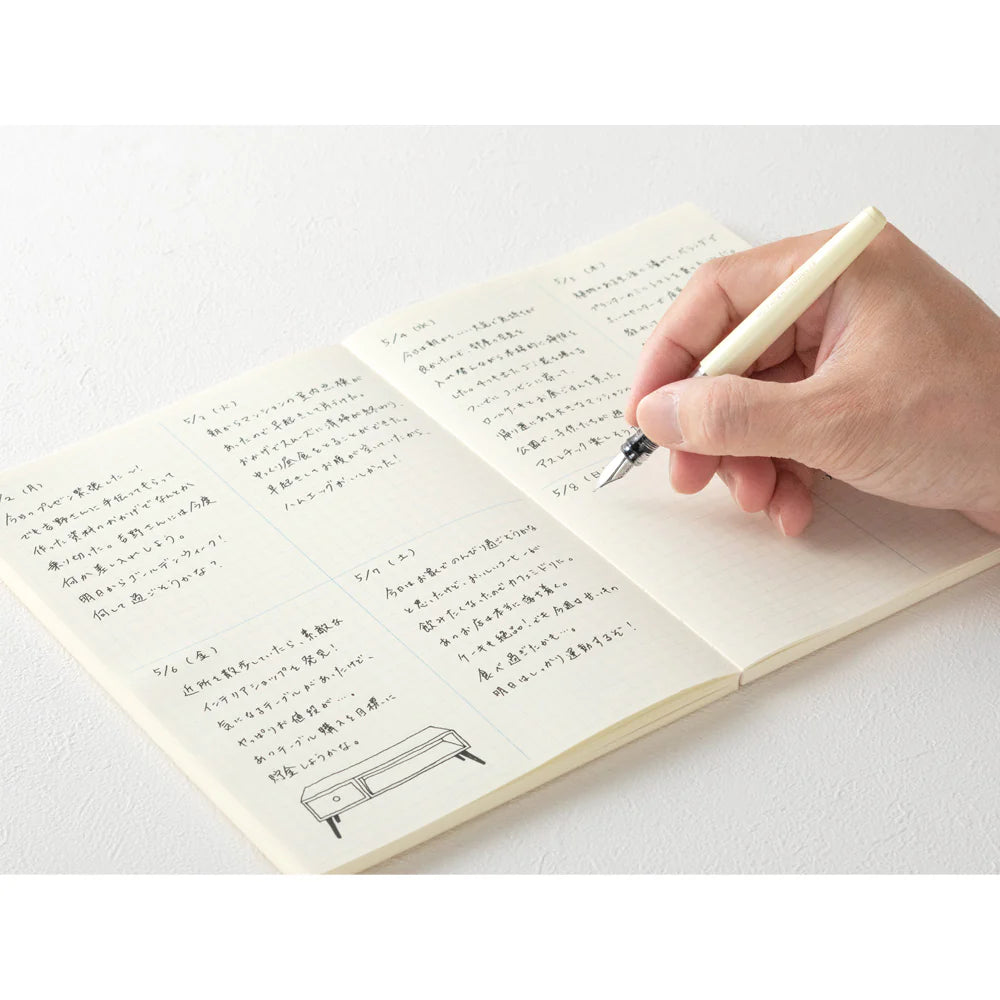 5/2 (月)
今日のプレゼン緊張した〜!
でも吉野さんに手伝ってもらって
作った資料のおかげでなんとか
乗り切った。吉野さんには今度
何か差し入れしよう。
明日からゴールデンウィーク!
何して過ごそうかな?
5/3 (火)
朝からマンションの室内点検が
あったので早起きして片づけた。
おかげでスムーズに清掃が終わり、
ゆっくり昼食をとることができた。
早起きしてお腹が空いていたから、
ハムエッグおいしかった!
5/4 (水)
今日は朝から
良かったので、部屋の空気を
入れ替えながら本格的に掃除を
フーゼルシーゼンに寄って、
ロールケーキとお昼ごはんを買った。
帰り道にある大きなマンションの
公園で、子供たちが
アスレチック楽しそう
5/5 (木)
プランターの
ホームセンターで
5/6 (金)
近所を散歩していたら、素敵な
インテリアショップを発見!
気になるテーブルがあったけど、
やっぱりお値段が…。
あのテーブル購入を目標に
貯金しようかな。
5/7 (土)
今日はお家でのんびり過ごそうかな
と思ったけど、おいしいコーヒーが
飲みたくなったのでカフェミドリに。
あのお店は本当に落ち着く。
ケーキも絶品!でも今週は甘いもの
食べ過ぎたかも…。
明日はしっかり運動するぞ!
5/8 (日